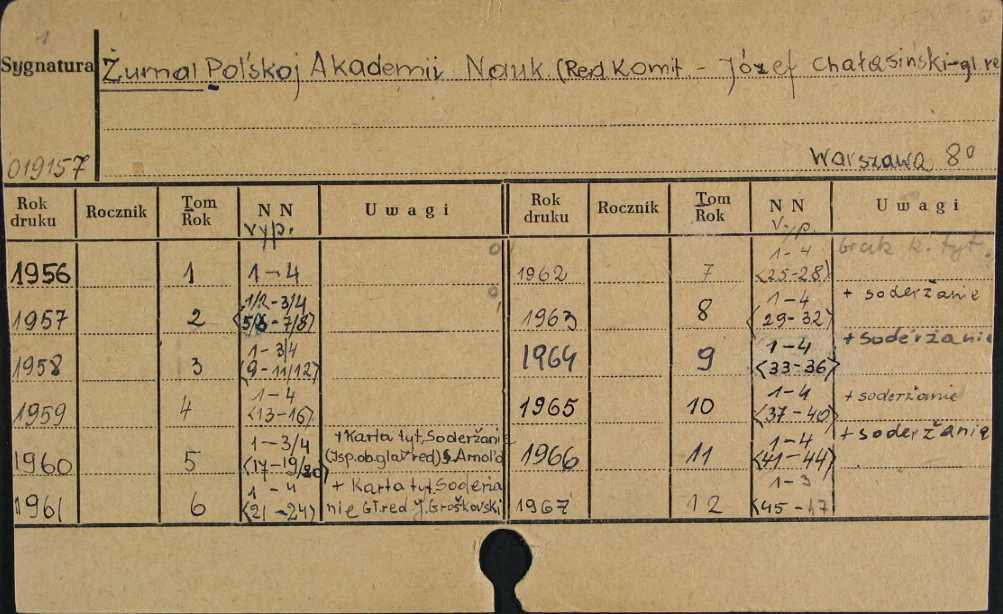 1
Sygnatura Žurnal Pol'skoj Akademii Nauk (Red Komit - Józef Chałasiński-gł re
019157 Warszawa 8⁰
Rok druku Rocznik Tom Rok NN vyp. Uwagi Rok druku Rocznik Tom Rok NN vyp. Uwagi
1956 1 1-4 1962 7 1-4 <25-28> brak k. tyt.
1957 2 1/2-3/4 <5/6-7/8> 1963 8 1-4 <29-32> + soderžanie
1958 3 1-3/4 <9-11/12> 1964 9 1-4 <33-36> + soderžanie
1959 4 1-4 <13-16> 1965 10 1-4 <37-40> + soderžanie
1960 5 1-3/4 <17-19/20> + Karta tyt, Soderžanie (Isp.ob.glav red) S. Arnol'd 1966 11 1-4 <41-44> + soderžanie
1961 6 1-4 <21-24> + Karta tyt, Soderžanie Gł red J. Groškovski 1967 12 1-3 <45-17